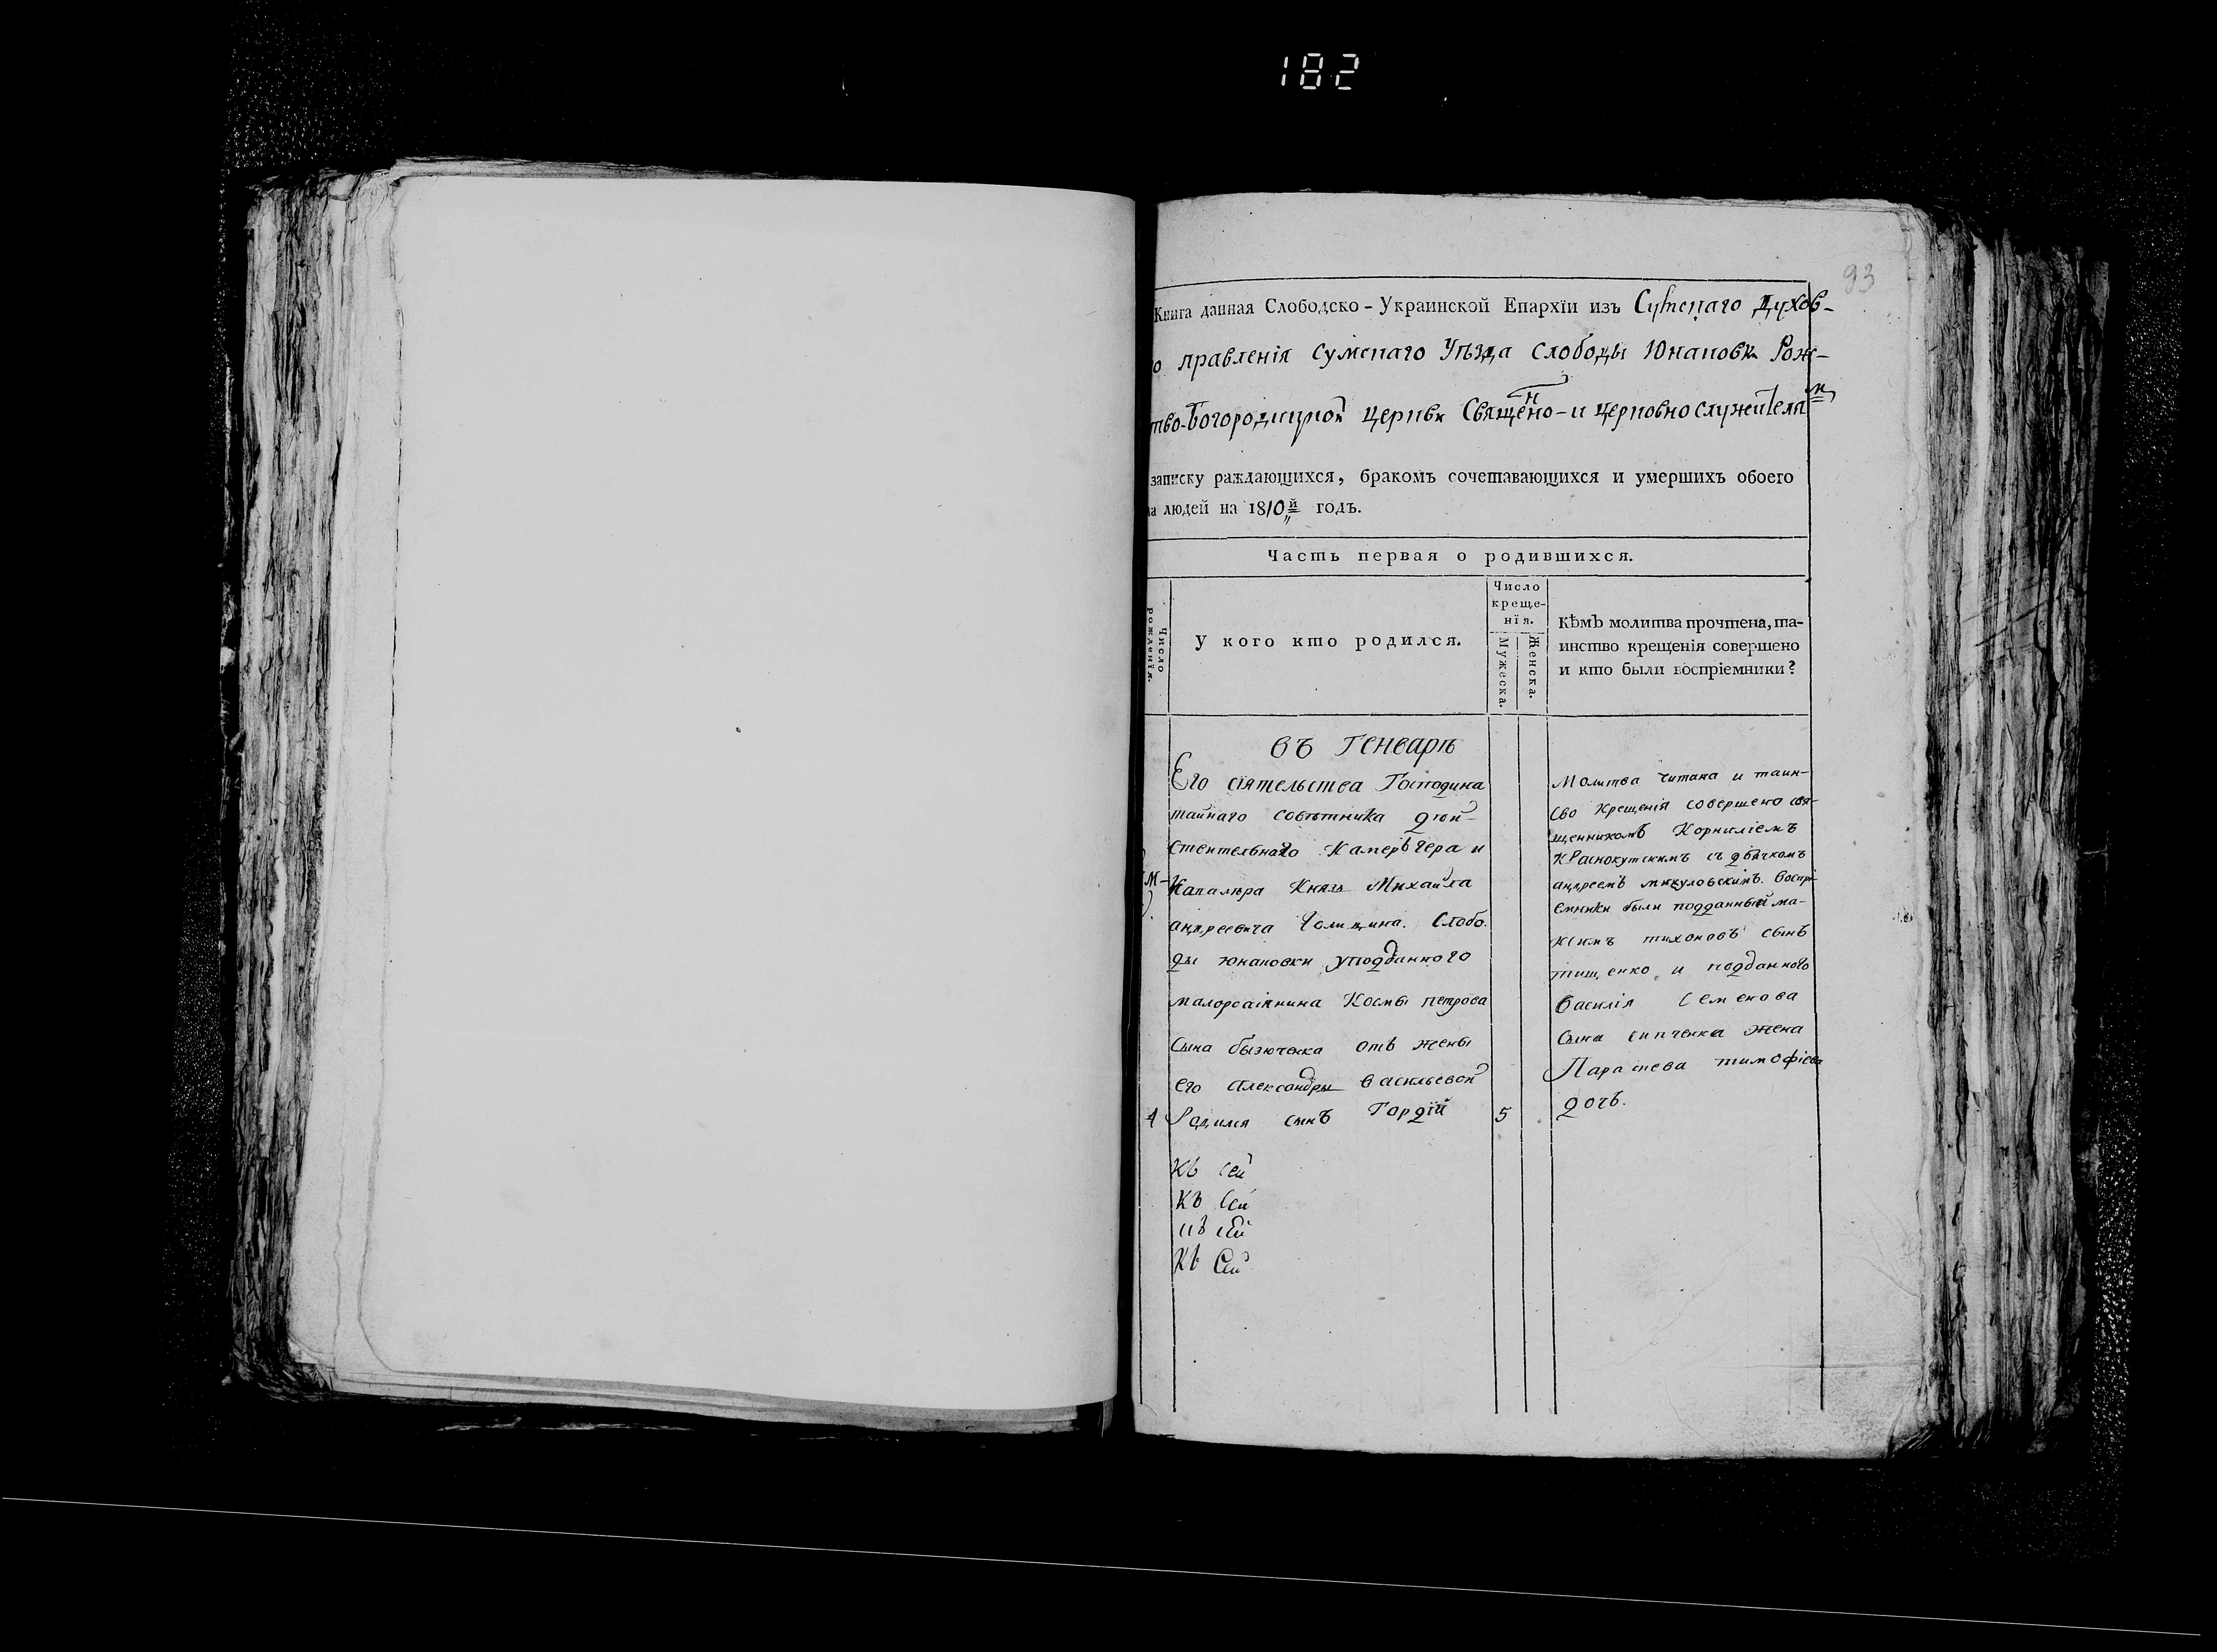 182
93
Книга данная Слободско-Украинской Епархїи изъ Сумскаго Духов-
о правленія Сумскаго Уѣзда Слободы Юнаковк Рож-
тво-Богородицкой Церкви Священо-и Церковнослужителям
записку раждающихся, бракомъ сочетавающихся и умершихъ обоего
ла людей на 1810й годъ.
Часть первая о родившихся.
Число рожденїя.
У кого кто родился.
Число
креще-
нїя.
Мужеска.
Женска.
Кѣмъ молитва прочтена, та-
инство крещенія совершено
и кто были воспріемники?
въ Генварѣ
Его сіятельства Господина
тайнаго совѣтника дѣй-
ствительнаго Камергера и
М-
Кавалѣра Князя Михайла
андреевича Голицина. Слобо-
ды юнаковки уподданного
малоросіянина Космы петрова
Сына бызюченка отъ жены
его александры васильевой
4 Родился сынъ Гордїй 5
Къ сей
Къ сей
къ сей
Къ Сей
Молитва читана и таин-
сво Крещенія совершено свя-
щенникомъ Корниліемъ
Краснокутскимъ съ дьячкомъ
андреемъ микуловскимъ. Воспрі-
емники были подданный ма-
ксимъ тихоновъ сынъ
тищенко и подданного
василія Семенова
Сына сипченка жена
Параскева тимофіева
дочь.